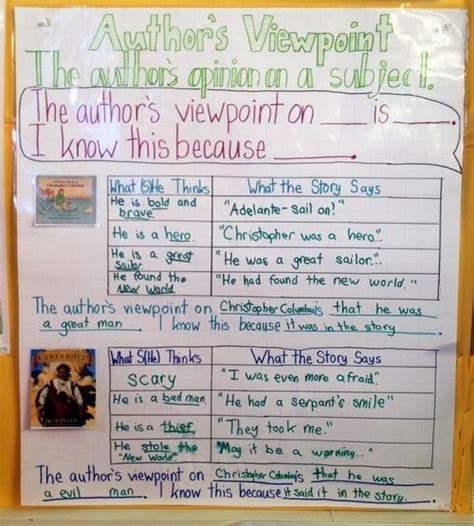 Author's Viewpoint
The author's opinion on a subject.
The author's viewpoint on ___ is ___.
I know this because ______.
What (S)He Thinks What the Story Says
He is bold and brave "Adelante-sail on!"
He is a hero. "Christopher was a hero..."
He is a great sailor. "He was a great sailor..."
He found the New World "He had found the new world."
The author's viewpoint on Christopher Columbus is that he was
a great man. I know this because it was in the story.
Encounter
What S(He) Thinks What the Story Says
Scary "I was even more afraid".
He is a bad man. "He had a serpant's smile"
He is a thief. "They took me."
He stole the "New World" "May it be a warning..."
The author's viewpoint on Christopher Columbus is that he was
a evil man. I know this because it said it in the story.